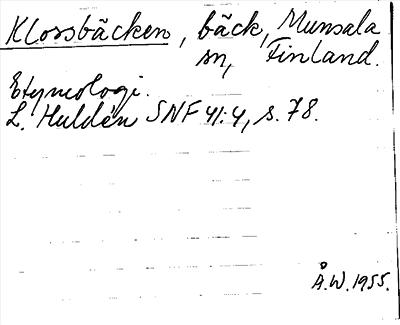 Klossbäcken, bäck, Munsala
sn, Finland.
Etymologi.
L. Huldén SNF 41:4, s. 78.
Å.W. 1955.